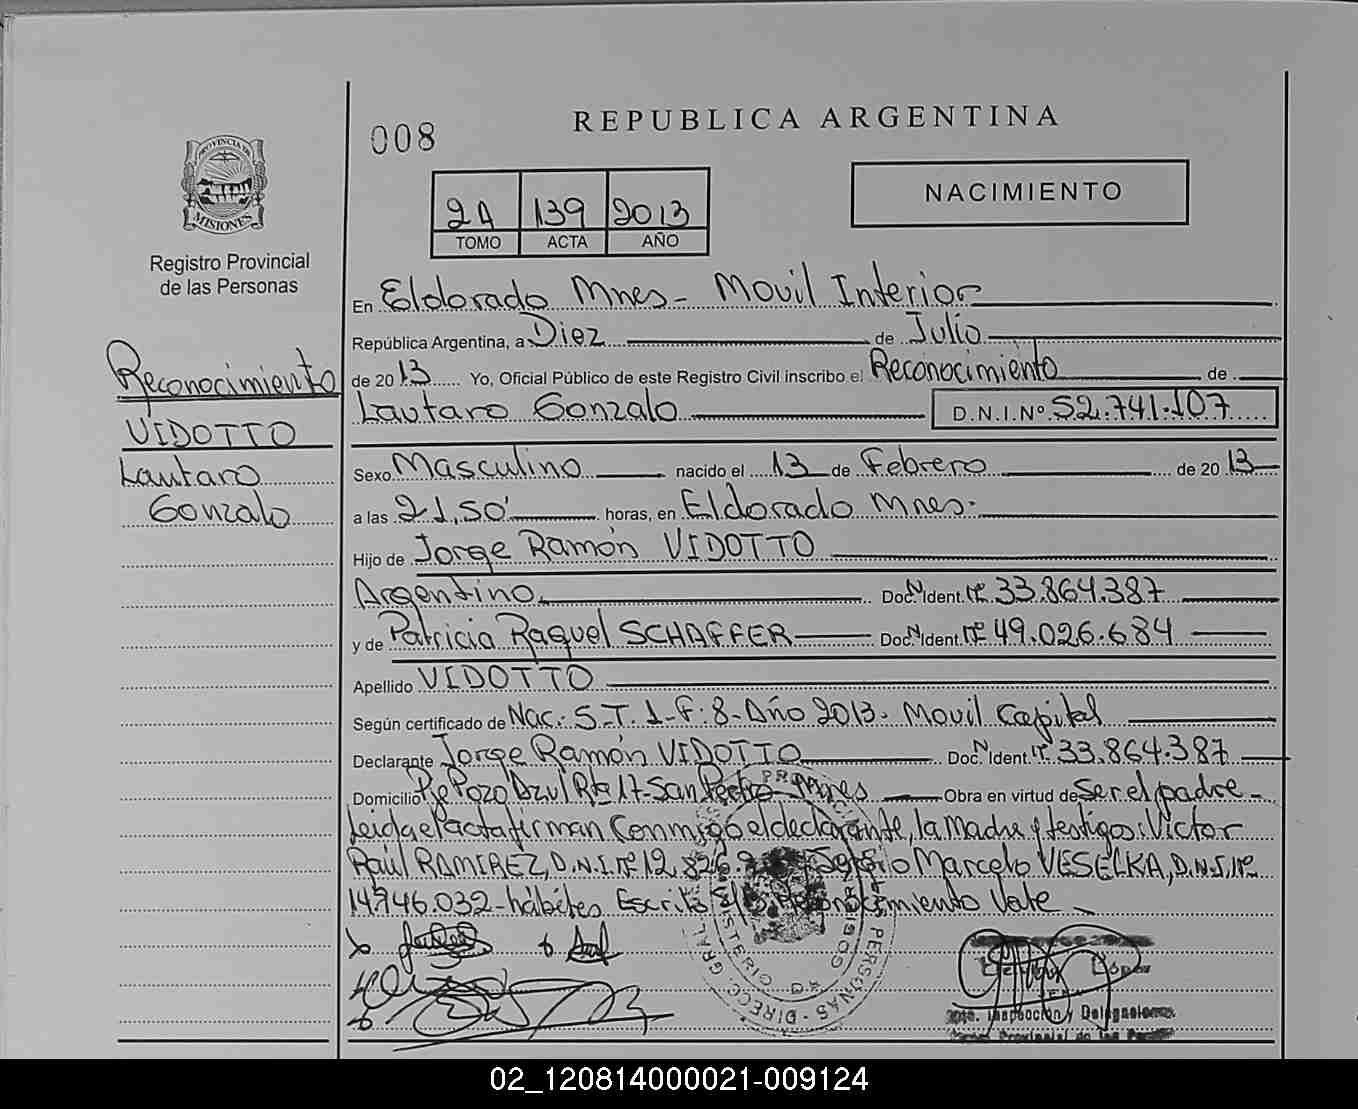 008
REPUBLICA ARGENTINA
NACIMIENTO
2A 139 2013
TOMO ACTA AÑO
PROVINCIA DE
MISIONES
Registro Provincial
de las Personas
Reconocimiento
VIDOTTO
Lautaro
Gonzalo
En Eldorado Mnes- Movil Interior
República Argentina, a Diez de Julio
de 2013 Yo, Oficial Público de este Registro Civil inscribo el Reconocimiento de
Lautaro Gonzalo D.N.I.Nº 52.741.107
Sexo Masculino nacido el 13 de Febrero de 2013
a las 21,50' horas, en Eldorado Mnes.
Hijo de Jorge Ramón VIDOTTO
Argentino. Doc. Ident. Nº 33.864.387
y de Patricia Raquel SCHAFFER Doc. Ident. Nº 49.026.684
Apellido VIDOTTO
Según certificado de Nac.- S-T.1-F:8-Año 2013- Movil Capital
Declarante Jorge Ramón VIDOTTO Doc. Ident. Nº 33.864.387
Domicilio Pje Pozo Azul Rta 17-San Pedro-Mnes Obra en virtud de ser el padre-
Leida el acta firman conmigo el declarante, la Madre y testigos: Victor
Raúl RAMIREZ, D.N.I.Nº 12.826. Sergio Marcelo VESELKA, D.N.I.Nº
14.746.032-hábiles Escrito Reconocimiento Vale
López
Inspección y Delegaciones
Provincial de las
PERSONAS - DIRECC. GRAL
MINISTERIO DE GOBIERNO
02_120814000021-009124